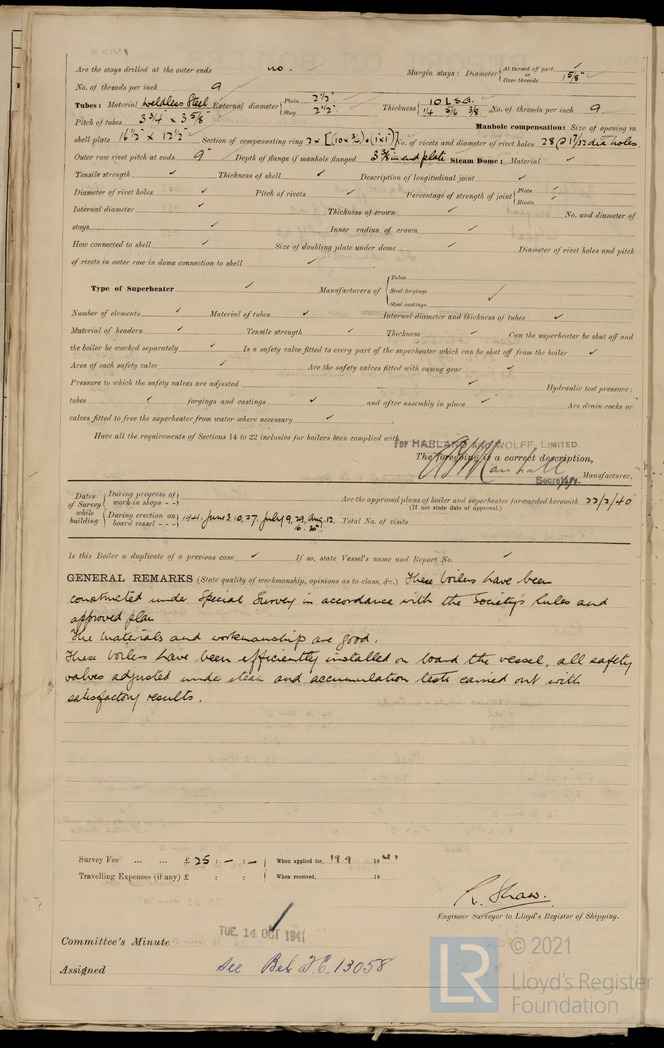 Are the stays drilled at the outer ends no. Margin stays: Diameter { At turned off part, ✓ or Over threads 1 5/8" ✓
No. of threads per inch 9
Tubes: Material Weldless Steel External diameter { Plain 2 1/2" Stay 2 1/2" Thickness { 10 LSG. 1/4 5/16 3/8 No. of threads per inch 9
Pitch of tubes 3 3/4 x 3 5/8" Manhole compensation: Size of opening in
shell plate 16 1/2" x 12 1/2" Section of compensating ring No. of rivets and diameter of rivet holes 28 @ 1 7/32 dia holes
Outer row rivet pitch at ends 9" Depth of flange if manhole flanged 3 3/8" in end plate Steam Dome: Material ✓
Tensile strength ✓ Thickness of shell ✓ Description of longitudinal joint ✓
Diameter of rivet holes ✓ Pitch of rivets ✓ Percentage of strength of joint { Plate ✓ Rivets ✓
Internal diameter ✓ Thickness of crown ✓ No. and diameter of
stays ✓ Inner radius of crown ✓
How connected to shell ✓ Size of doubling plate under dome ✓ Diameter of rivet holes and pitch
of rivets in outer row in dome connection to shell ✓
Type of Superheater ✓ Manufacturers of { Tubes Steel forgings Steel castings ✓
Number of elements ✓ Material of tubes ✓ Internal diameter and thickness of tubes ✓
Material of headers ✓ Tensile strength ✓ Thickness ✓ Can the superheater be shut off and
the boiler be worked separately ✓ Is a safety valve fitted to every part of the superheater which can be shut off from the boiler ✓
Area of each safety valve ✓ Are the safety valves fitted with easing gear ✓
Pressure to which the safety valves are adjusted ✓ Hydraulic test pressure:
tubes ✓ forgings and castings ✓ and after assembly in place ✓ Are drain cocks or
valves fitted to free the superheater from water where necessary ✓
Have all the requirements of Sections 14 to 22 inclusive for boilers been complied with
FOR HARLAND AND WOLFF, LIMITED.
The foregoing is a correct description,
Secretary. Manufacturer.
Dates of Survey while building { During progress of work in shops - - Are the approved plans of boiler and superheater forwarded herewith 22/2/40
(If not state date of approval.)
During erection on board vessel - - - 1941, June 3, 10, 27, July 9, 29, Aug. 12, 16, 20 Total No. of visits
Is this Boiler a duplicate of a previous case ✓ If so, state Vessel's name and Report No. ✓
GENERAL REMARKS (State quality of workmanship, opinions as to class, &c.) These boilers have been
constructed under Special Survey in accordance with the Society's Rules and
approved plan
The materials and workmanship are good.
These boilers have been efficiently installed on board the vessel, all safety
valves adjusted under steam and accumulation tests carried out with
satisfactory results.
Survey Fee ... ... £ 25 : - : - When applied for, 19 9 1941
Travelling Expenses (if any) £ : : When received, 19
R. Shaw.
Engineer Surveyor to Lloyd's Register of Shipping.
Committee's Minute TUE. 14 OCT 1941
Assigned See Bel. F.E. 13058
LR © 2021
Lloyd's Register
Foundation